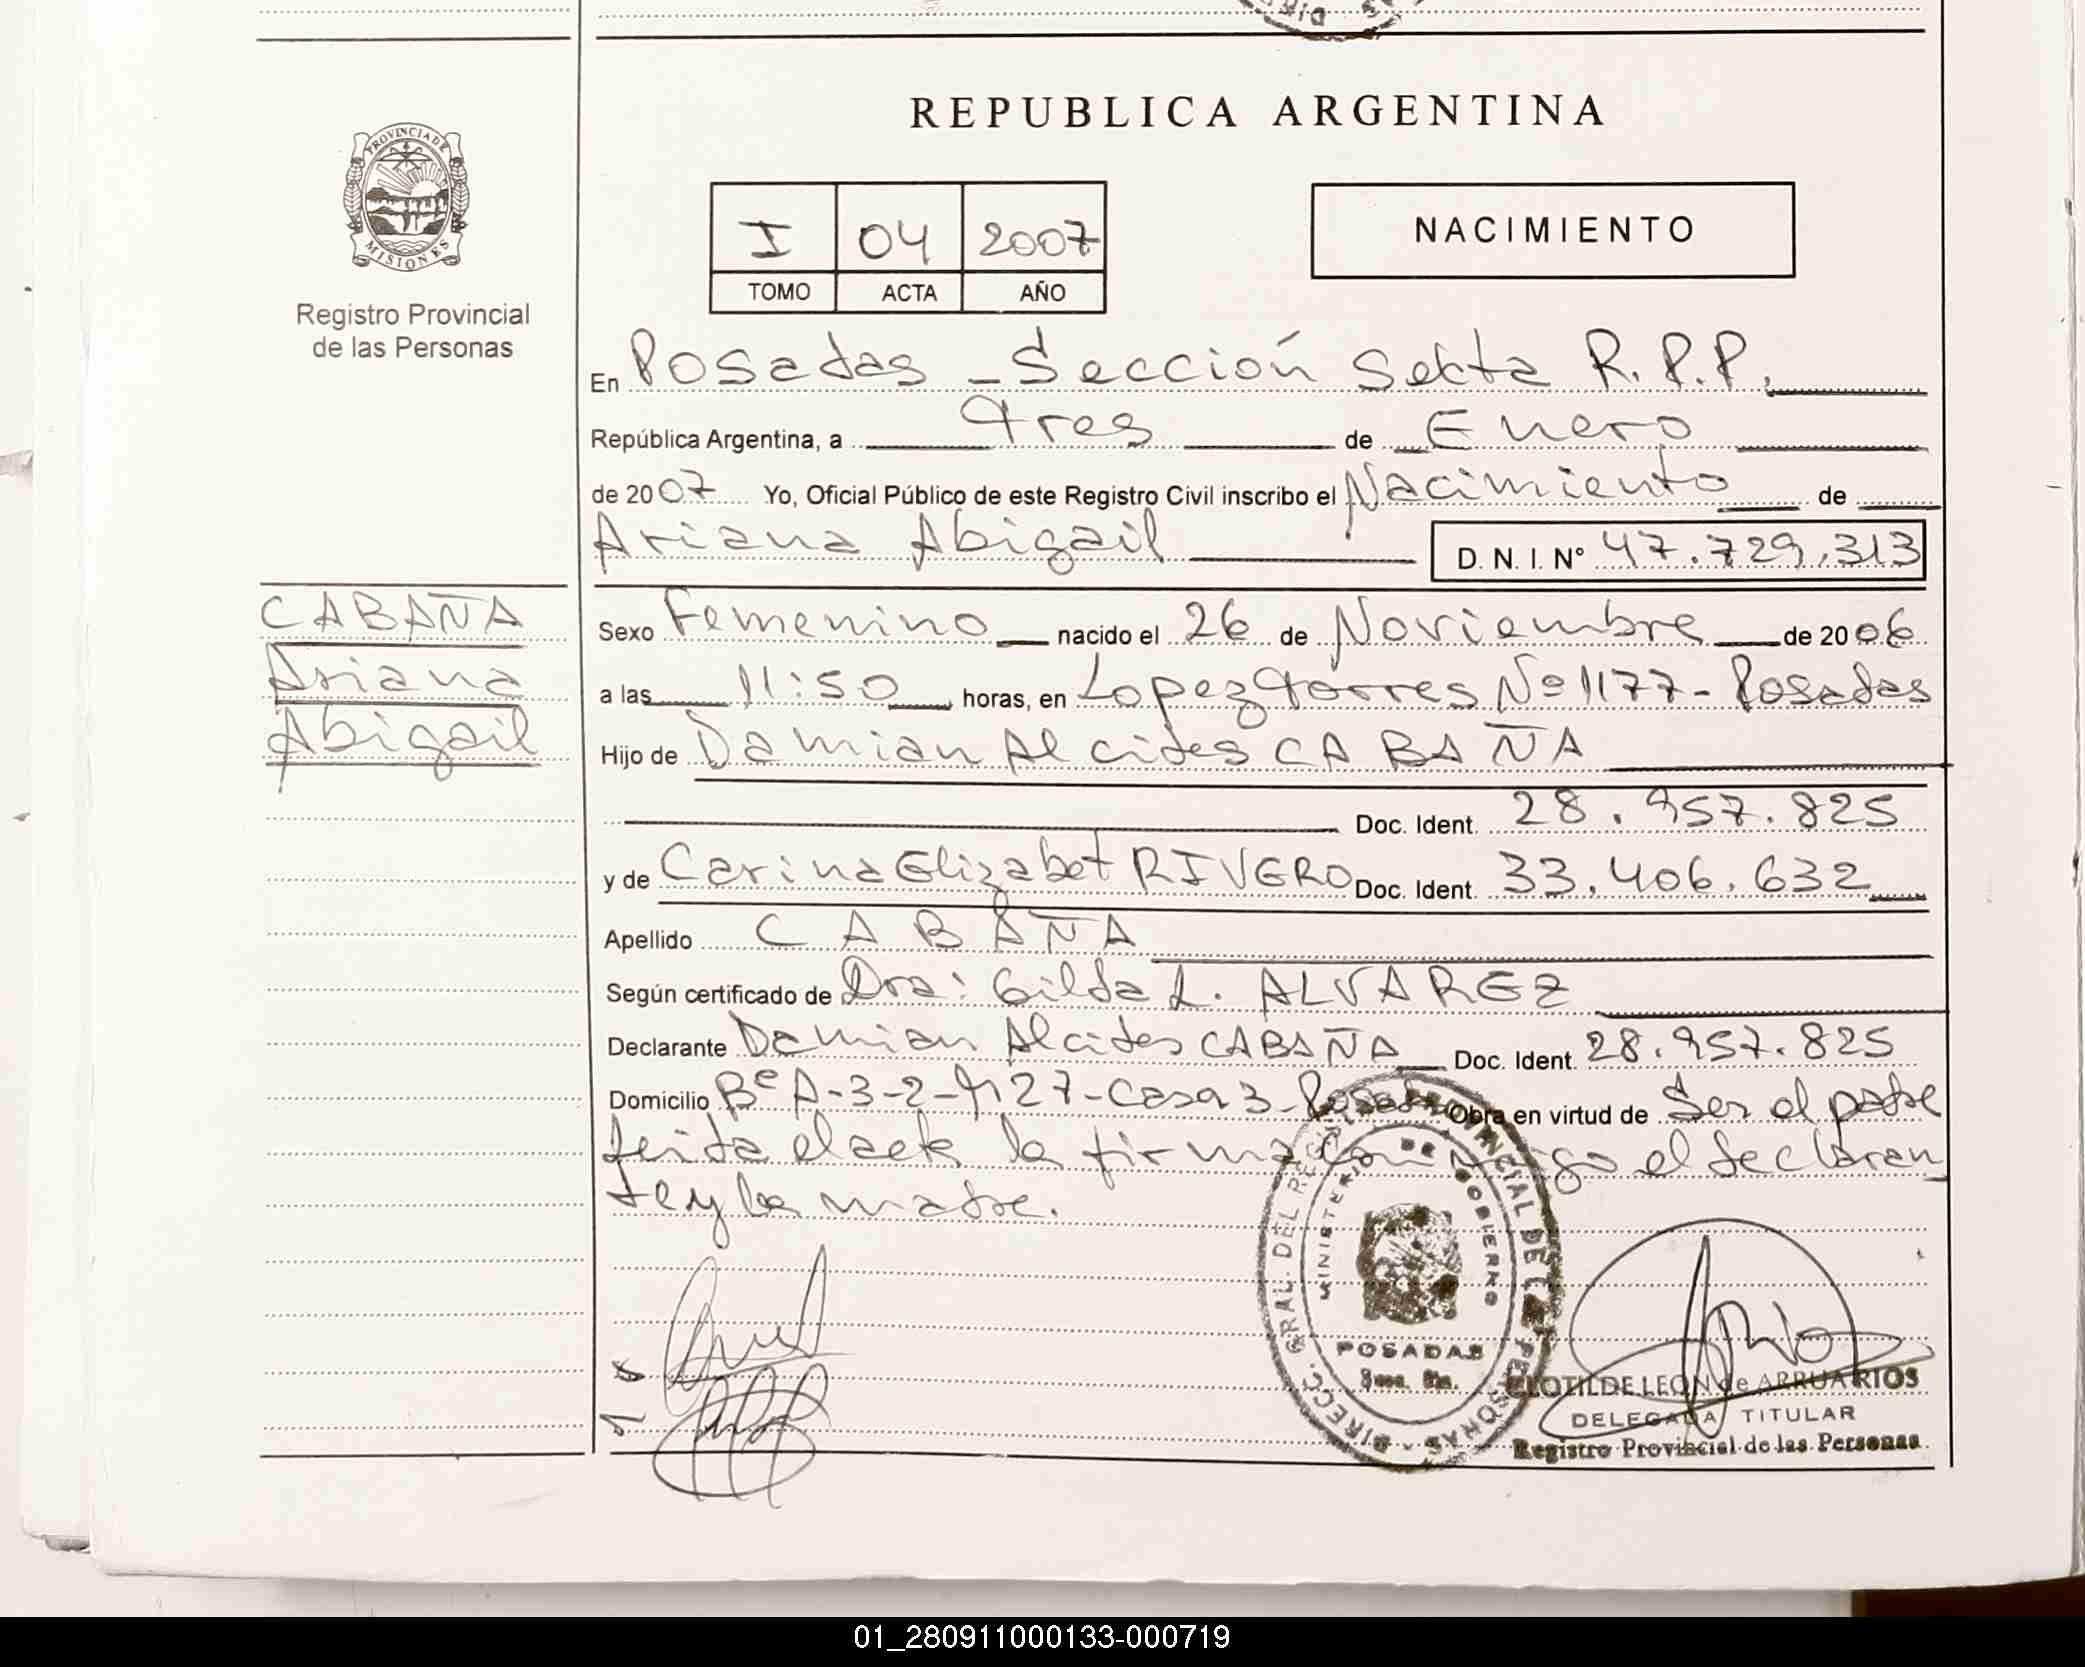 REPUBLICA ARGENTINA
PROVINCIA DE
MISIONES
Registro Provincial
de las Personas
I 04 2007
TOMO ACTA AÑO
NACIMIENTO
En Posadas - Sección Sexta R.P.P.
República Argentina, a Tres de Enero
de 2007 Yo, Oficial Público de este Registro Civil inscribo el Nacimiento de
Ariana Abigail D. N. I. N° 47.729.313
CABAÑA
Ariana
Abigail
Sexo Femenino nacido el 26 de Noviembre de 2006
a las 11:50 horas, en Lopez Torres Nº 1177 - Posadas
Hijo de Damian Alcides CABAÑA
Doc. Ident. 28.957.825
y de Carina Elizabet RIVERO Doc. Ident. 33.406.632
Apellido CABAÑA
Según certificado de Dra: Gilda L. ALVAREZ
Declarante Damian Alcides CABAÑA Doc. Ident. 28.957.825
Domicilio Bº A-3-2- Casa 3 - Posadas Obra en virtud de Ser el padre
leida el acta la firma conmigo el declaran
te y la madre.
DIRECC. GRAL. DEL REG. PROVINCIAL DE LAS PERSONAS
MINISTERIO DE GOBIERNO
POSADAS
CLOTILDE LEON de ARRUARIOS
DELEGADA TITULAR
Registro Provincial de las Personas
01_280911000133-000719